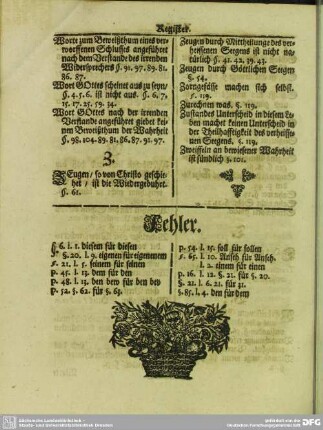 Register.
Wort zum Beweißthum eines ver-
worffenen Schlusses angeführet
nach dem Verstande des irrenden
Widersprechers §. 91. 97. 89. 81.
86. 87.
Wort GOttes scheinet aus zu seyn/
§. 4. 5. 6. ist nicht aus. §. 6. 7,
15. 17. 25. 29. 34.
Wort GOttes nach der irrenden
Verstande angeführet giebet kei-
nen Beweißthum der Wahrheit
§. 98. 104. 89. 81. 86. 87. 91. 97.
Z.
ZEugen/ so von Christo geschie-
het/ ist die Wiedergebuhrt.
§. 61.
Zeugen durch Mittheilunge des ver-
heissenen Seegens ist nicht na-
türlich §. 41. 42. 39. 43.
Zeugen durch Göttlichen Seegen
§. 54.
Zorngefässe machen sich selbst.
§. 119.
Zurechnen was. §. 119.
Zustandes Unterscheid in diesem Le-
ben machet keinen Unterscheid in
der Theilhafftigkeit des verheisse-
nen Seegens. §. 119.
Zweiffeln an bewiesener Wahrheit
ist sündlich §. 101.
Fehler.
§ 6. l. 1. diesem für diesen
§. 20. l. 9. eigenen für eigennem
§. 21. l. 5. seinem für seinen
p. 45. l. 13. dem für den
p. 48. l. 13. den bey für den bey
p. 52. §. 62. für §. 63.
p. 54. l. 15. soll für sollen
§. 65. l. 10. Anseh für Ansch.
l. 2. einem für einen
p. 16. l. 12. §. 21. für §. 20.
§. 21. l. 6. 21. für 31.
§. 85. l. 4. den für dem
Sächsische Landesbibliothek
Staats- und Universitätsbibliothek Dresden
gefördert von der
Deutschen Forschungsgemeinschaft
DFG